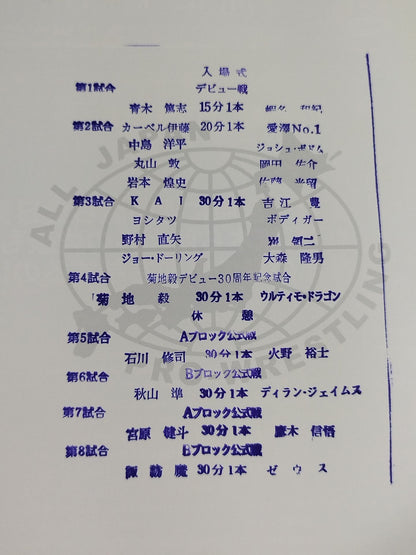 入場式
第1試合 デビュー戦
青木 篤志 15分1本
第2試合 カーベル伊藤 20分1本 愛澤No.1
中島 洋平 ジョシュ・ボドム
丸山 敦 岡田 佑介
岩本 煌史 佐藤 光留
第3試合 KAI 30分1本 吉江 豊
ヨシタツ ボディガー
野村 直矢 崔 領二
ジョー・ドーリング 大森 隆男
第4試合 菊地毅デビュー30周年記念試合
菊地 毅 30分1本 ウルティモ・ドラゴン
休憩
第5試合 Aブロック公式戦
石川 修司 30分1本 火野 裕士
第6試合 Bブロック公式戦
秋山 準 30分1本 ディラン・ジェイムス
第7試合 Aブロック公式戦
宮原 健斗 30分1本 鷹木 信悟
第8試合 Bブロック公式戦
諏訪魔 30分1本 ゼウス
ALL JAPAN
PRO-WRESTLING